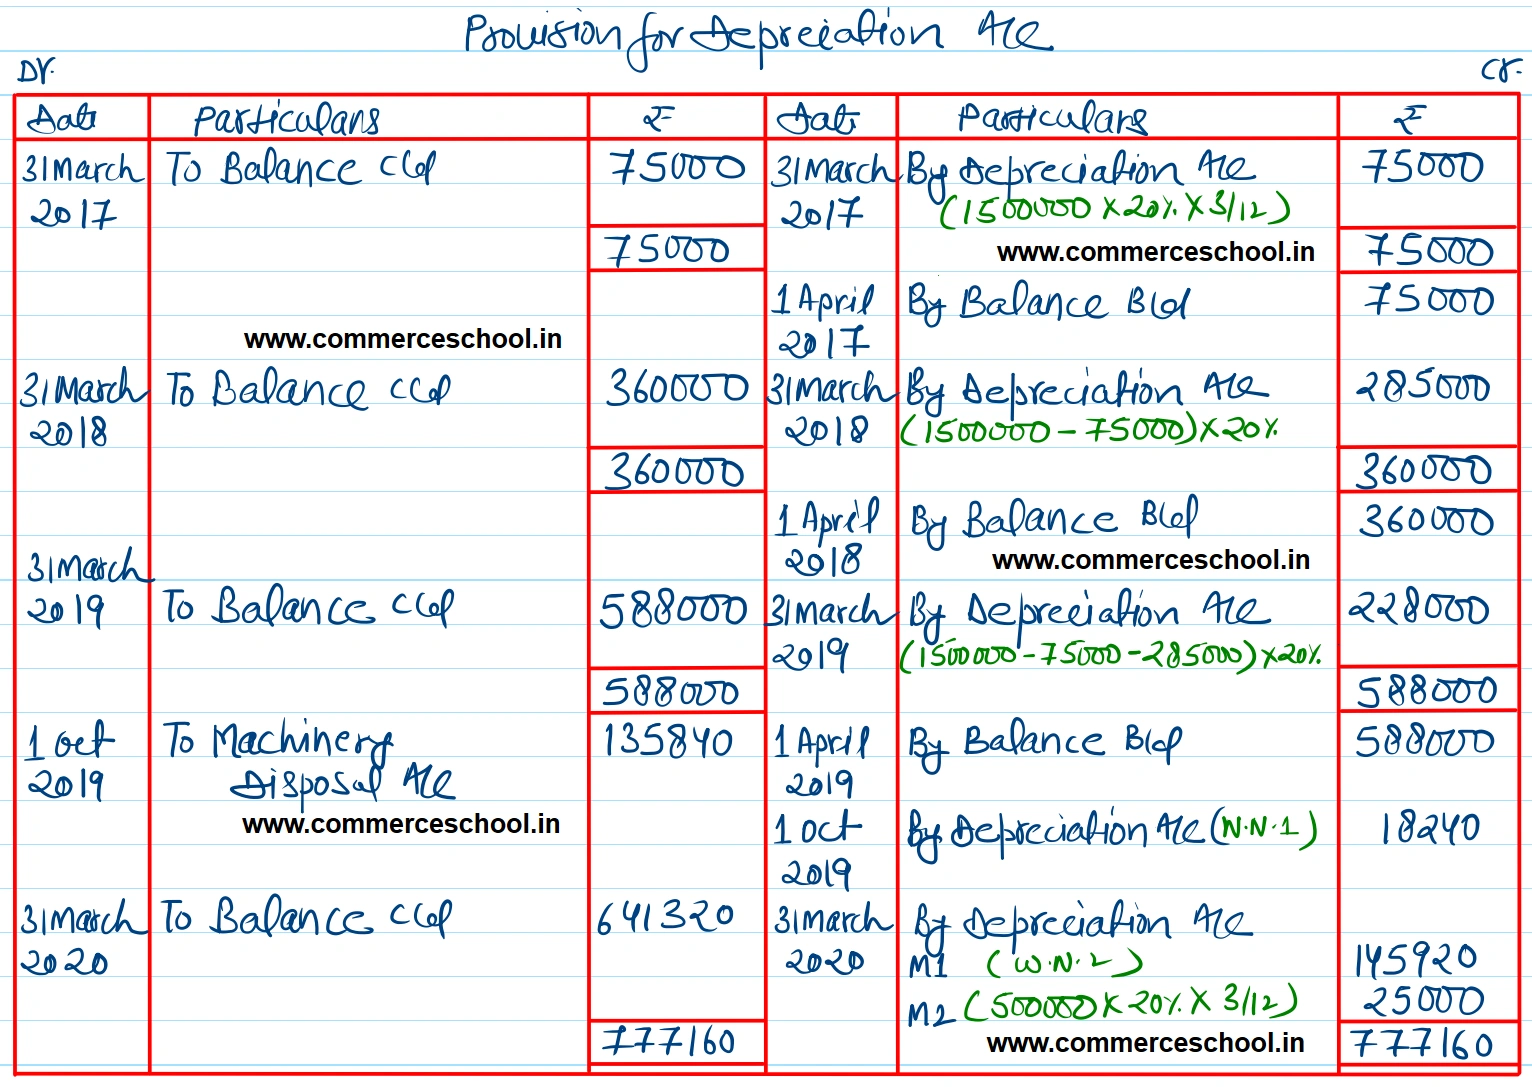 Provision for Depreciation A/c
Dr. Cr.
Date Particulars ₹ Date Particulars ₹
31 March To Balance c/d 75000 31 March By Depreciation A/c 75000
2017 2017 (1500000 x 20% x 3/12)
75000 www.commerceschool.in 75000
1 April By Balance B/d 75000
www.commerceschool.in 2017
31 March To Balance c/d 360000 31 March By Depreciation A/c 285000
2018 2018 (1500000 - 75000) x 20%
360000 360000
1 April By Balance B/d 360000
2018 www.commerceschool.in
31 March
2019 To Balance c/d 588000 31 March By Depreciation A/c 228000
2019 (1500000 - 75000 - 285000) x 20%
588000 588000
1 Oct To Machinery 135840 1 April By Balance B/d 588000
2019 Disposal A/c 2019
www.commerceschool.in 1 Oct By Depreciation A/c (W.N.1) 18240
2019
31 March To Balance c/d 641320 31 March By Depreciation A/c
2020 2020 M1 (W.N.2) 145920
M2 (500000 x 20% x 3/12) 25000
777160 www.commerceschool.in 777160